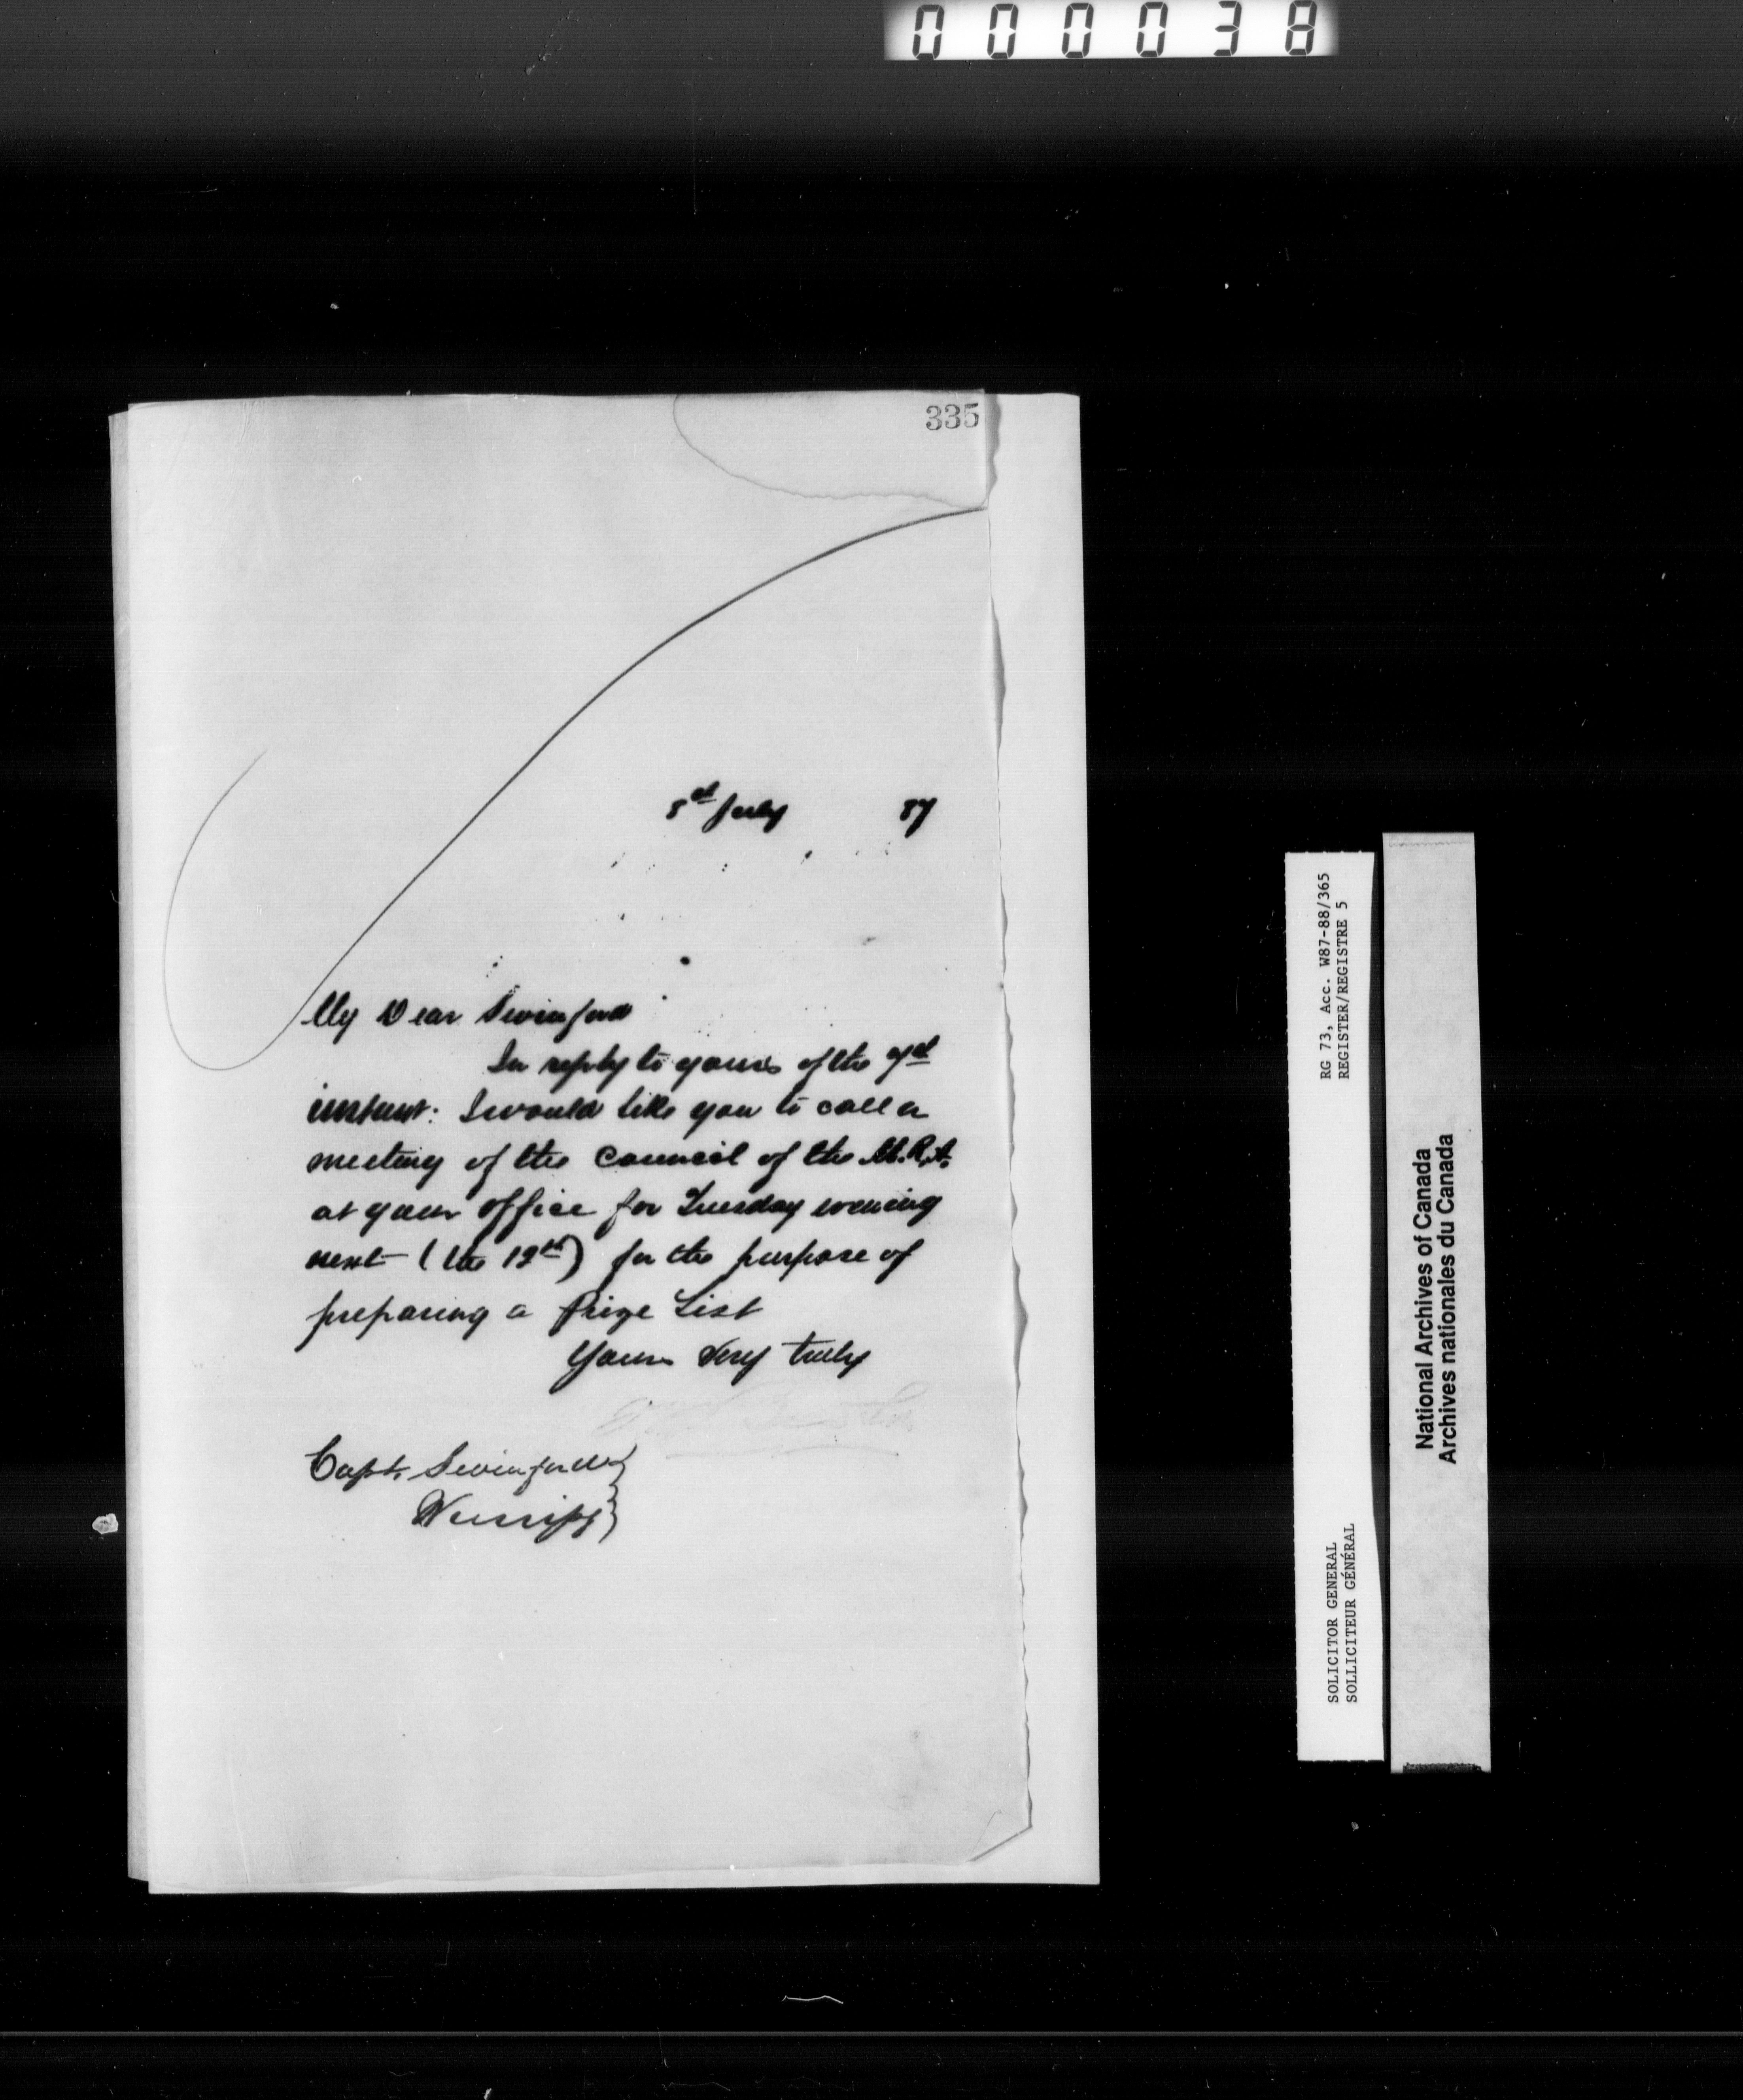 000038
335
8th July 87
My Dear Swinford
In reply to yours of the 7th
instant: I would like you to call a
meeting of the Council of the M.R.A.
at your office for Tuesday evening
next (the 12th) for the purpose of
preparing a Prize List
Yours Very truly
Capt. Swinford
Winnipg
RG 73, Acc. W87-88/365
REGISTER/REGISTRE 5
SOLICITOR GENERAL
SOLLICITEUR GÉNÉRAL
National Archives of Canada
Archives nationales du Canada